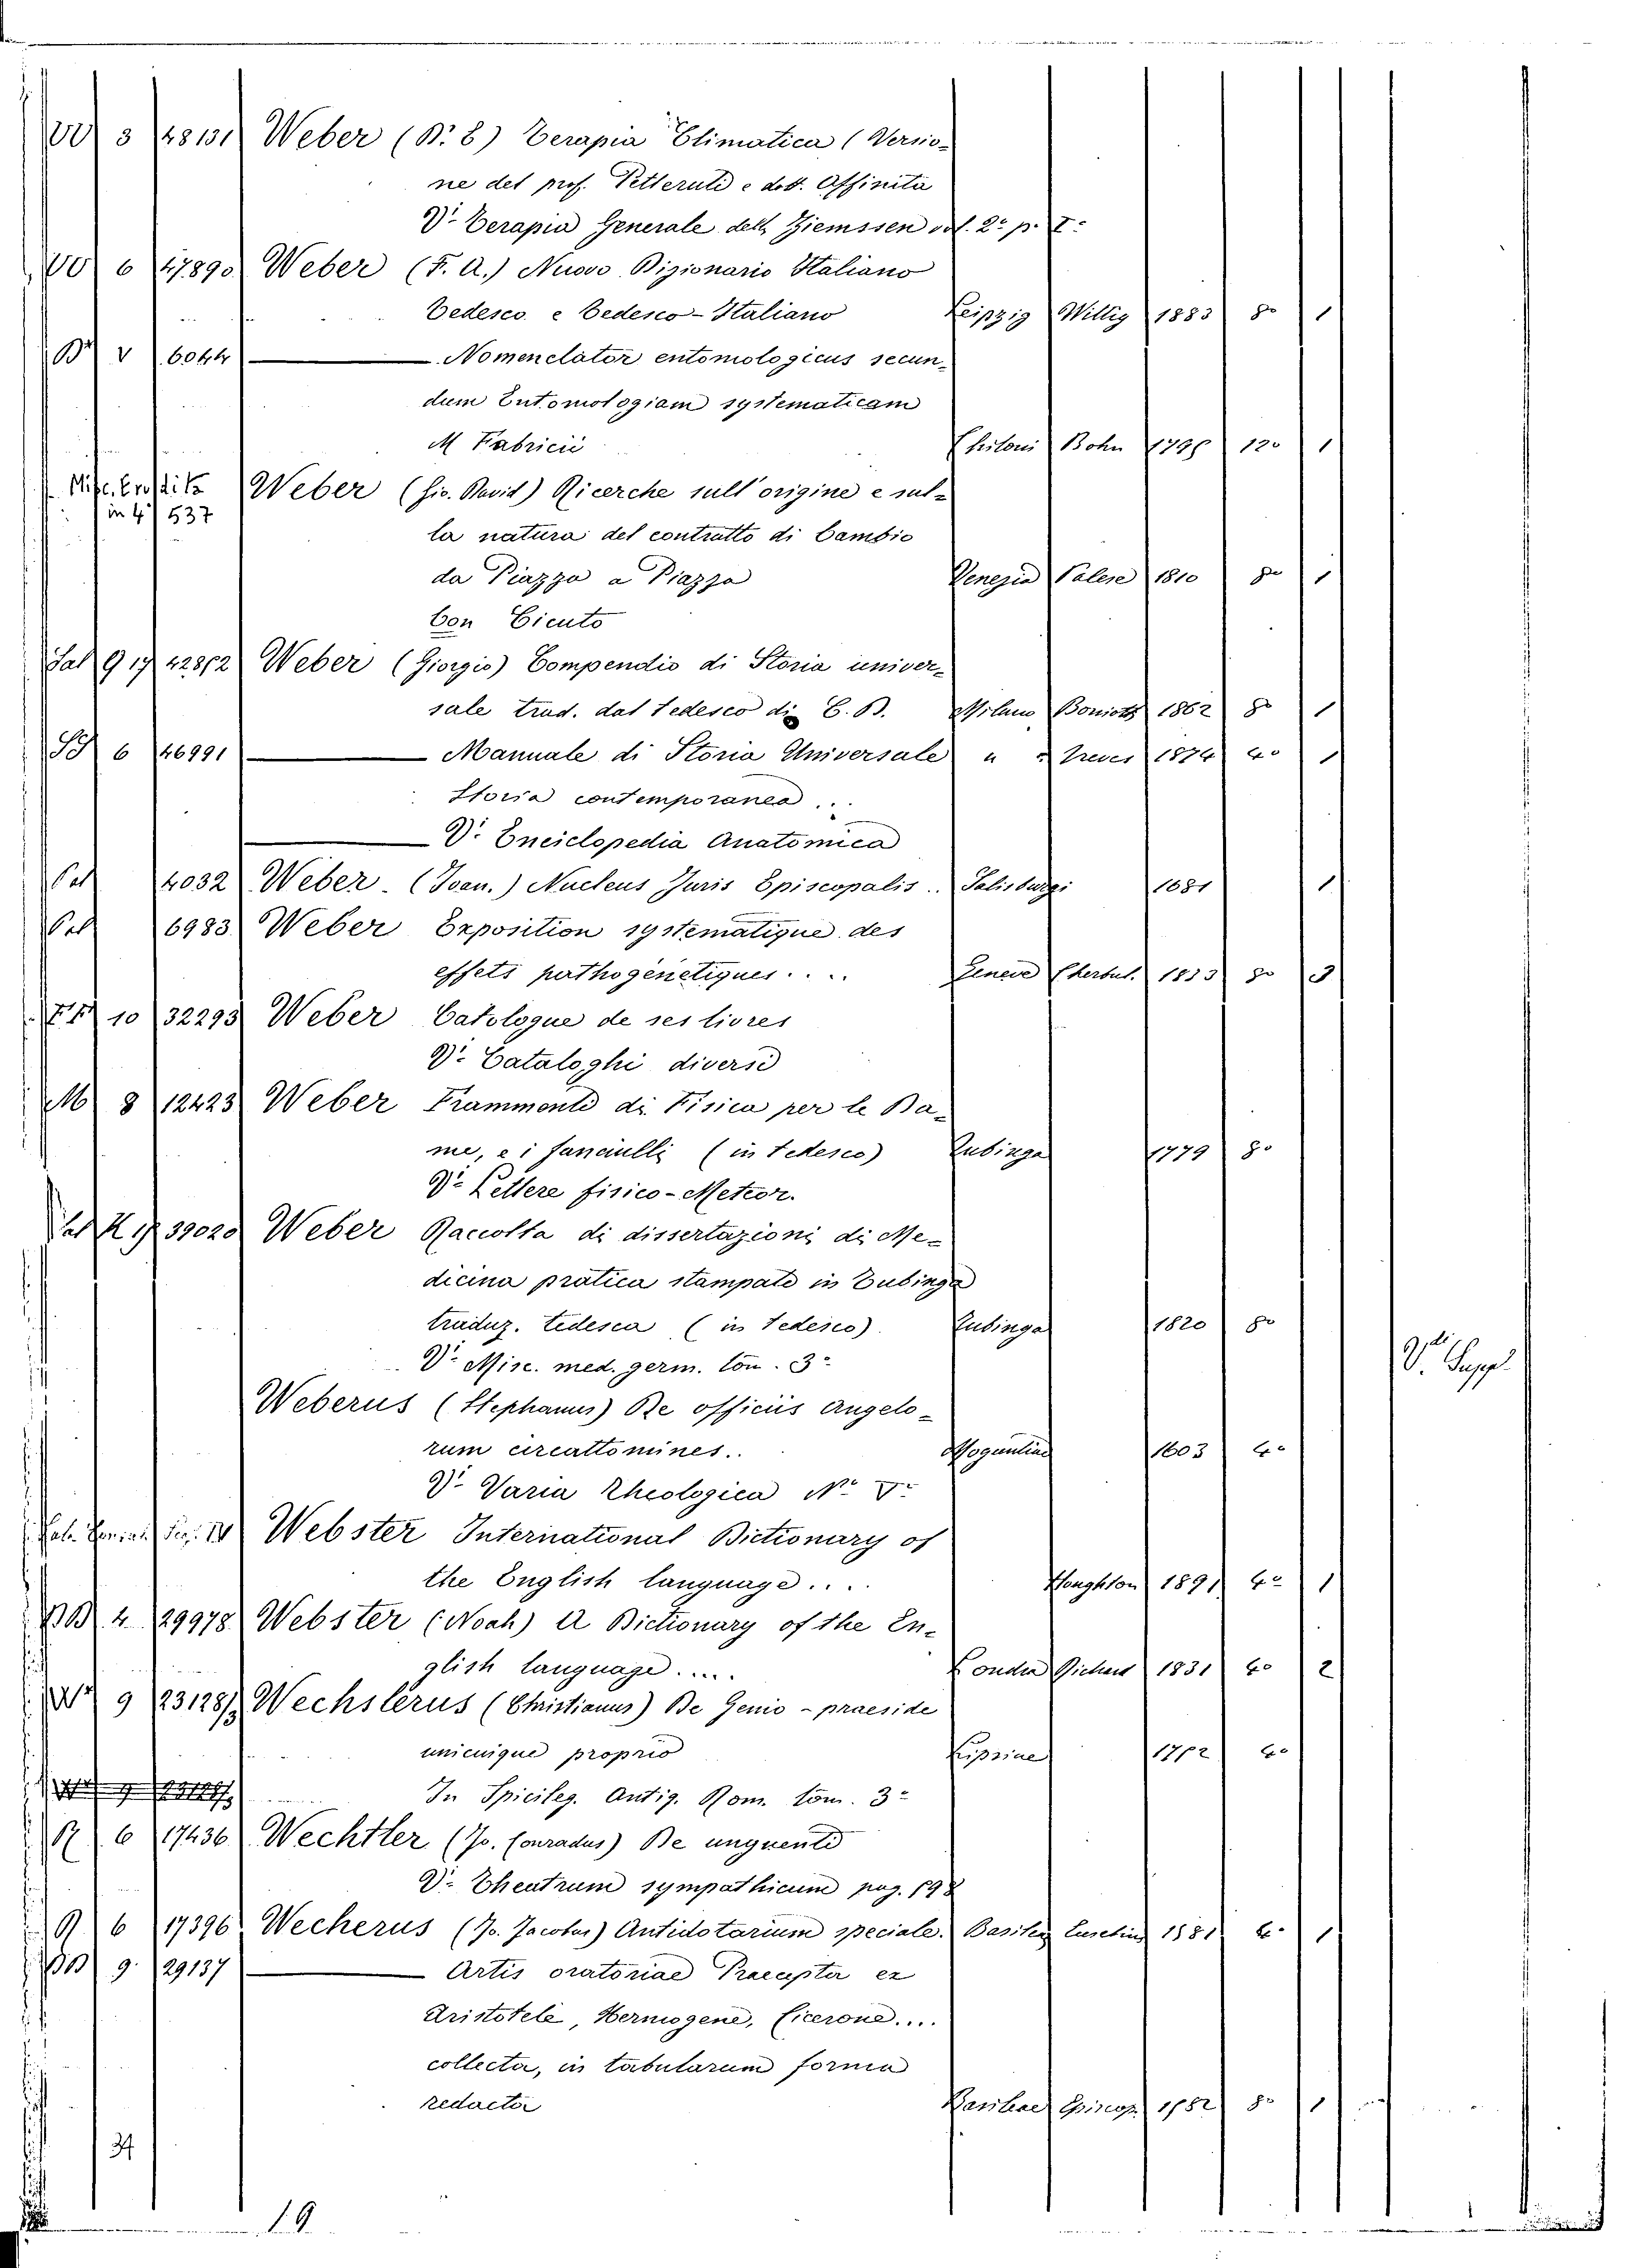 3 48131 Weber (D. E) Terapia Climatica (Versio-
ne del prof. Petteruti e dot. Affinita
V. Terapia Generale dell Ziemssen vol. 2º p. I.
6 47890 Weber (F. A.) Nuovo Dizionario Italiano
Tedesco e Tedesco-Italiano Leipzig Willig 1883 8º 1
V 6044 — Nomenclator entomologicus secun-
dum Entomologiam systematicam
M Fabricii Chiloni Bohn 1795 12º 1
Misc. Erudite Weber (Gio. David) Ricerche sull'origine e sul-
in 4º 537
la natura del contratto di Cambio
da Piazza a Piazza Venezia Palese 1810 8º 1
Con Cicuto
Sal 9 17 42852 Weber (Giorgio) Compendio di Storia univer-
sale trad. dal tedesco di C. B. Milano Boniotti 1862 8º 1
6 46991 — Manuale di Storia Universale " " Treves 1874 4º 1
Storia contemporanea..
— V. Enciclopedia Anatomica
Sal 4032 Weber (Joan.) Nucleus Juris Episcopalis.. Salisburgi 1681 1
Sal 6983 Weber Exposition systematique des
effets pathogénetiques.... Geneve Cherbul. 1833 8º 3
10 32293 Weber Catologue de ses livres
V. Cataloghi diversi
M 8 12423 Weber Frammenti di Fisica per le Da-
me, e i fanciulli (in tedesco) Tubinga 1779 8º
V. Lettere fisico-Meteor.
Sal K 17 39020 Weber Raccolta di dissertazioni di Me-
dicina pratica stampate in Tubinga
traduz. tedesca (in tedesco). Tubinga 1820 8º
V. Misc. med. germ. tom. 3º
V. Suppl.
Weberus (Stephanus) De officiis Angelo-
rum circattomines.. Moguntiae 1603 4º
V. Varia Theologica Nº V.
Webster International Dictionary of
the English language.... Houghton 1891 4º 1
BB 4 29978 Webster (Noah) A Dictionary of the En-
glish language..... Londra Richard 1831 4º 2
9 23128 Wechslerus (Christianus) De Genio - praeside
unicuique proprio Lipsiae 1752 4º
In Spicileg. Antiq. Rom. tom. 3º
R 6 17436 Wechtler (Jo. Conradus) De unguenti
V. Theatrum sympathicum pag. 198
R 6 17396 Wecherus (Jo. Jacobus) Antidotarium speciale. Basileae 1581 4º 1
BB 9. 29137 — Artis oratoriae Praecepta ex
Aristotele, Hermogene, Cicerone....
collecta, in tabularum forma
redacta Basileae Episcop. 1582 8º 1
34
19